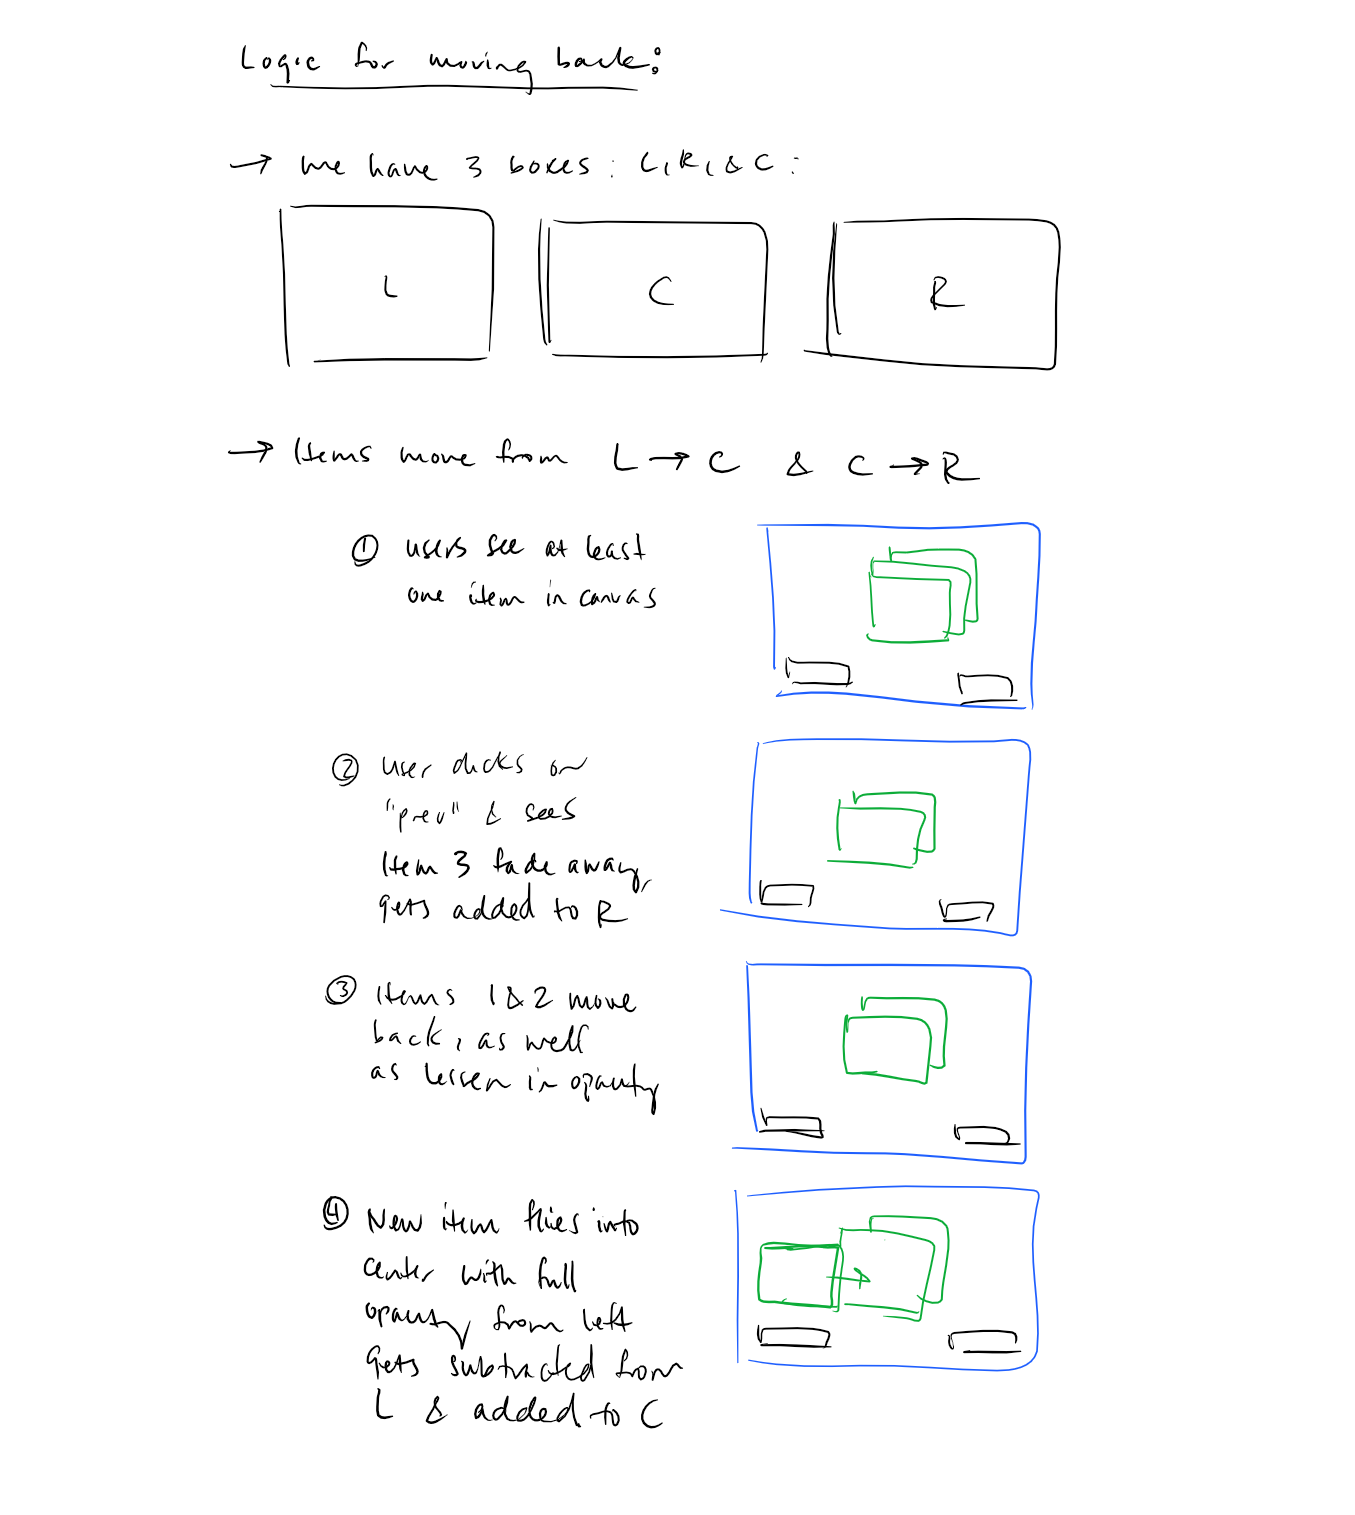 Logic for moving back:
→ we have 3 boxes: L, R, & C:
L
C
R
→ Items move from L → C & C → R
① users see at least
one item in canvas
② user clicks on
"prev" & sees
Item 3 fade away,
gets added to R
③ Items 1 & 2 move
back, as well
as lessen in opacity
④ New item flies into
center with full
opacity from left
gets subtracted from
L & added to C